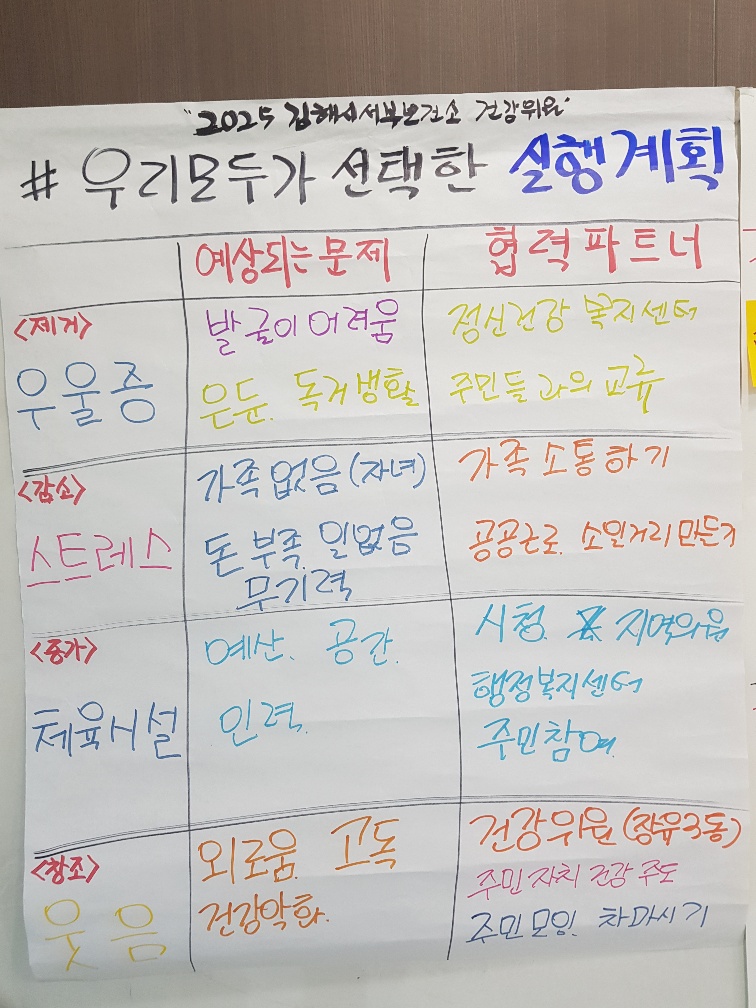 "2025 김해시서부보건소 건강위원"
# 우리모두가 선택한 실행계획
예상되는 문제 협력파트너
<제거>
우울증
발굴이 어려움
은둔. 독거생활
정신건강 복지센터
주민들과의 교류
<감소>
스트레스
가족없음(자녀)
돈부족. 일없음
무기력
가족소통하기
공공근로. 소일거리만들기
<증가>
체육시설
예산. 공간.
인력.
시청. 지역의원
행정복지센터
주민참여.
<창조>
웃음
외로움. 고독
건강악화.
건강위원(장유3동)
주민자치 건강 주도
주민모임. 차마시기